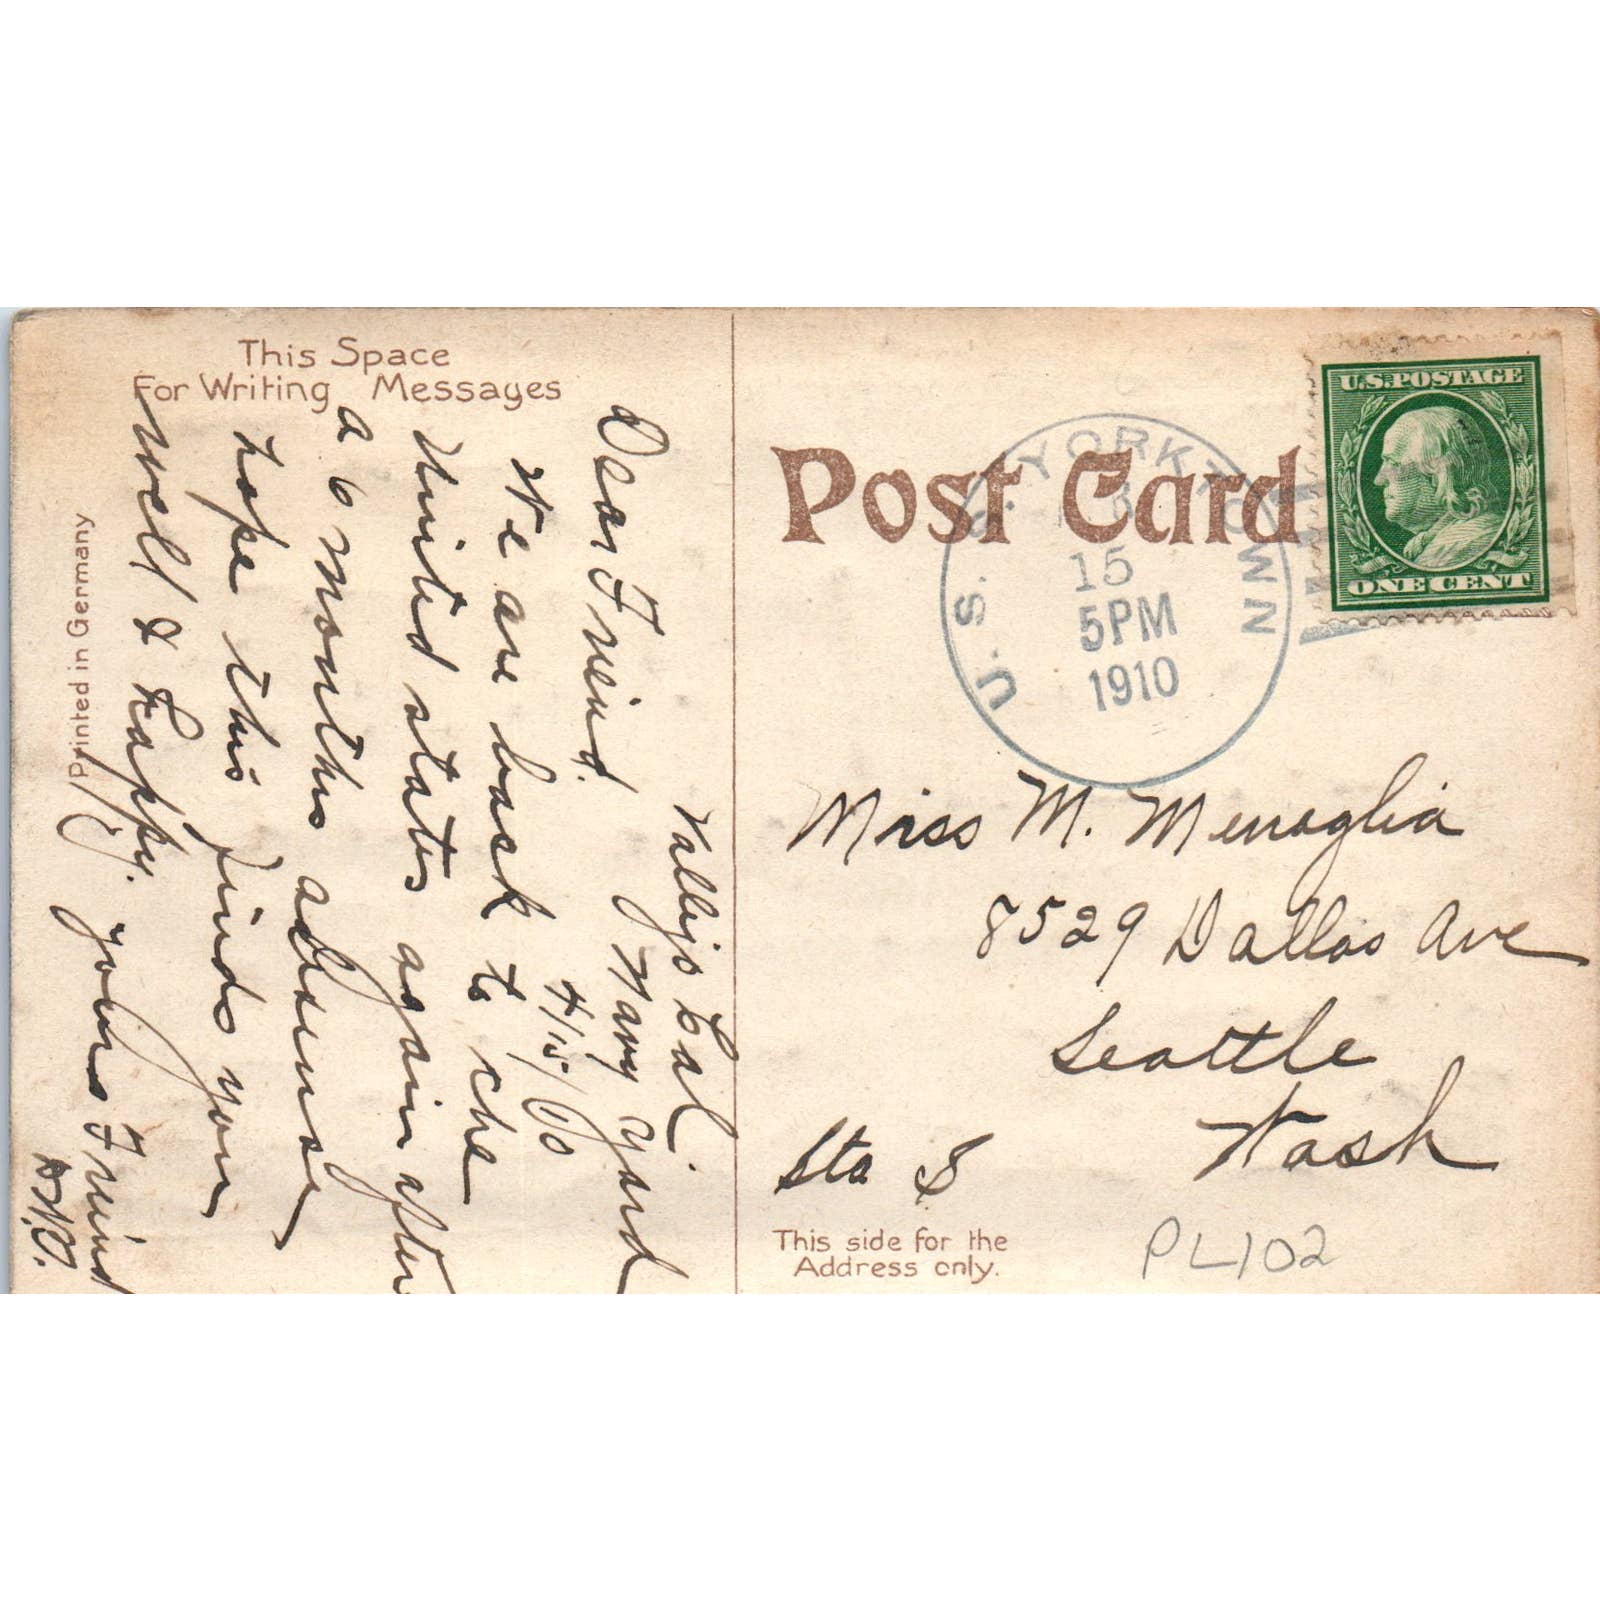 This Space
For Writing Messages
Printed in Germany
Vallejo Cal.
Navy Yard
4/15/10
Dear Friend.
We are back to the
United states again after
a 6 months absense
hope this finds you
well & happy.
yours Friend
Post Card
U.S.S. YORKTOWN
15
5PM
1910
U.S. POSTAGE
ONE CENT
Miss M. Menaglia
8529 Dallas Ave
Seattle
Wash
Sta S
This side for the
Address only.
PL102